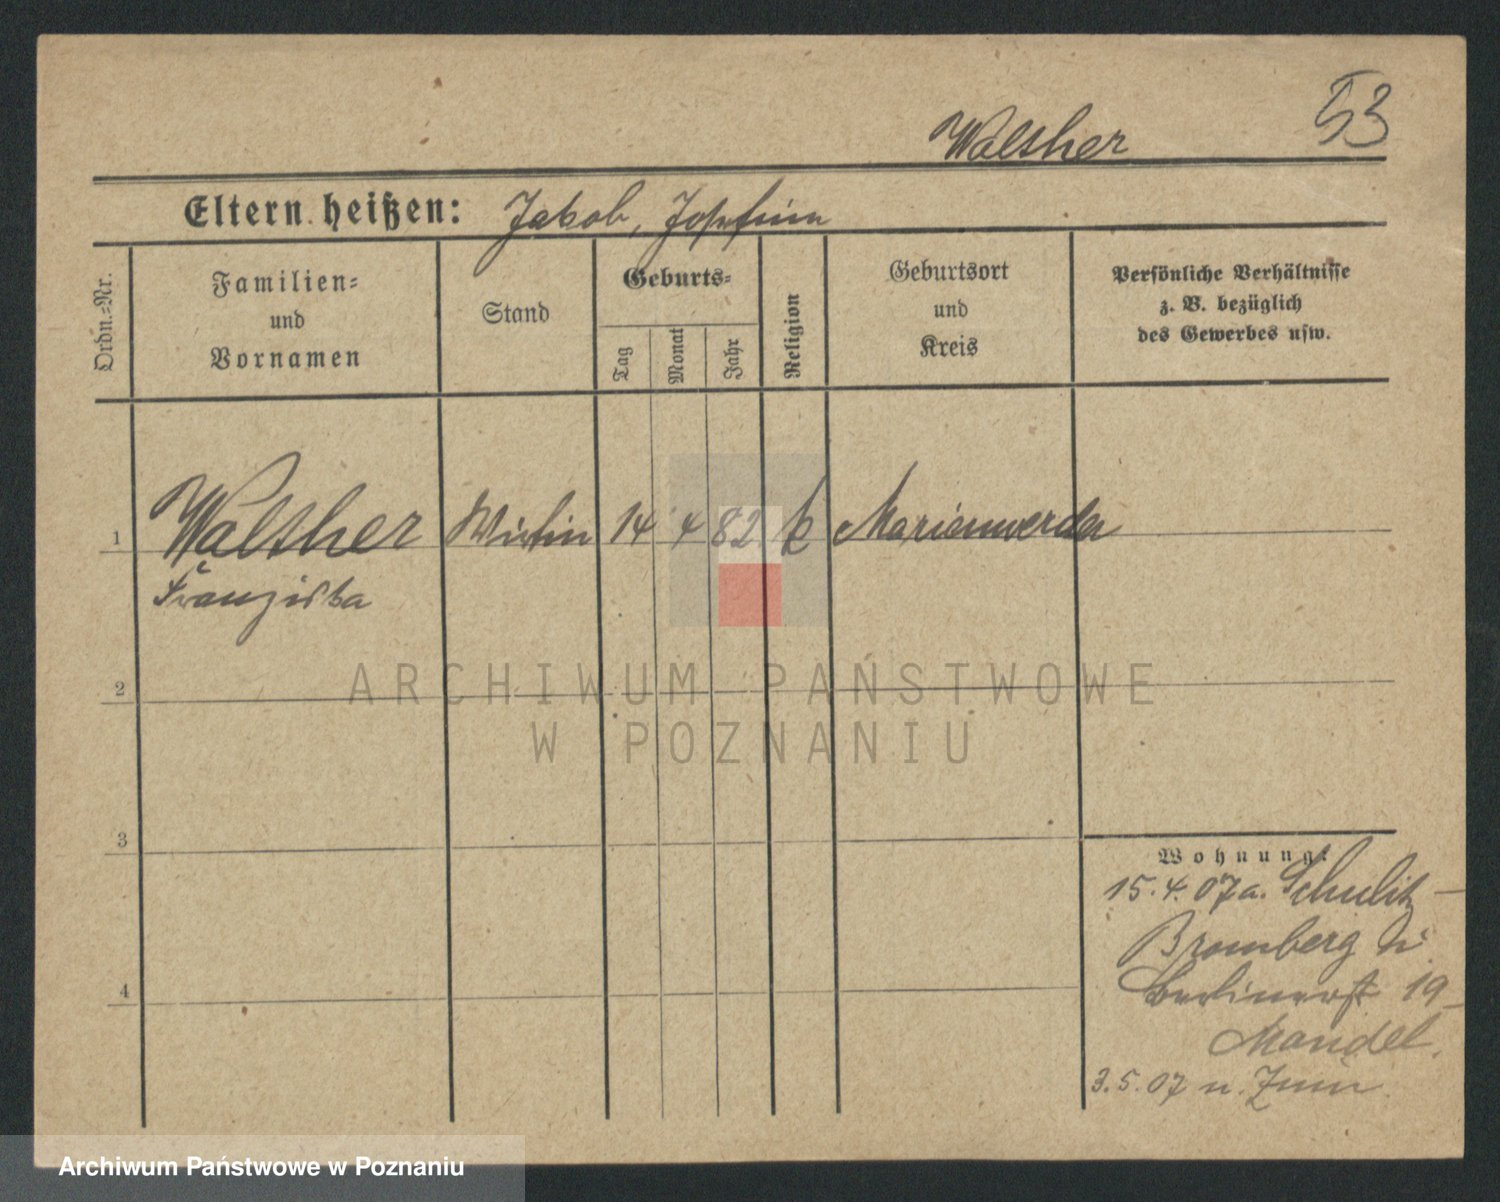 53
Walther
Eltern heißen: Jakob, Josefine
Ordn.-Nr.
Familien-
und
Vornamen
Stand
Geburts-
Tag
Monat
Jahr
Religion
Geburtsort
und
Kreis
Persönliche Verhältnisse
z. B. bezüglich
des Gewerbes usw.
1 Walther Wirtin 14 4 82 k Marienwerder
Franziska
2
3
4
Wohnung:
15.4.07 a. Schulitz -
Bromberg
Berlinerst 19
Mandel.
3.5.07 n. Znin
ARCHIWUM PAŃSTWOWE
W POZNANIU
Archiwum Państwowe w Poznaniu